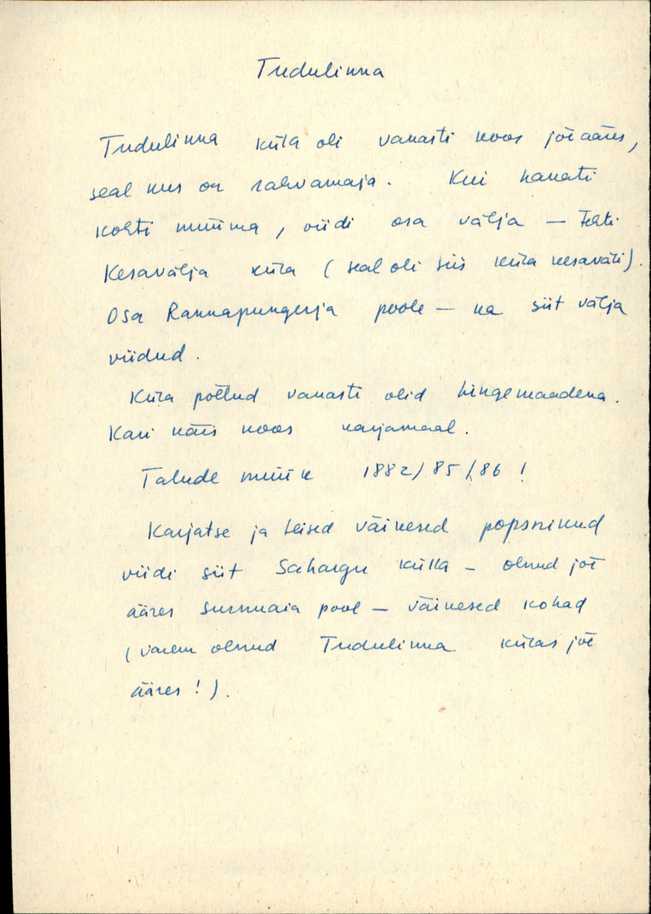 Tudulinna
Tudulinna küla oli vanasti koos jõe ääres,
seal kus on rahvamaja. Kui hakati
kohti müüma, viidi osa välja — tehti
Kesavälja küla (seal oli siis küla kesaväli).
Osa Rannapungerja poole — ka siit välja
viidud.
Küla põllud vanasti olid hingemaadena.
Kari käis koos karjamaal.
Talude müük 1882/85/86!
Karjatse ja teised väikesed popsnikud
viidi siit Sahargu külla — olnud jõe
ääres surnuaia pool — väikesed kohad
(varem olnud Tudulinna külas jõe
ääres!).